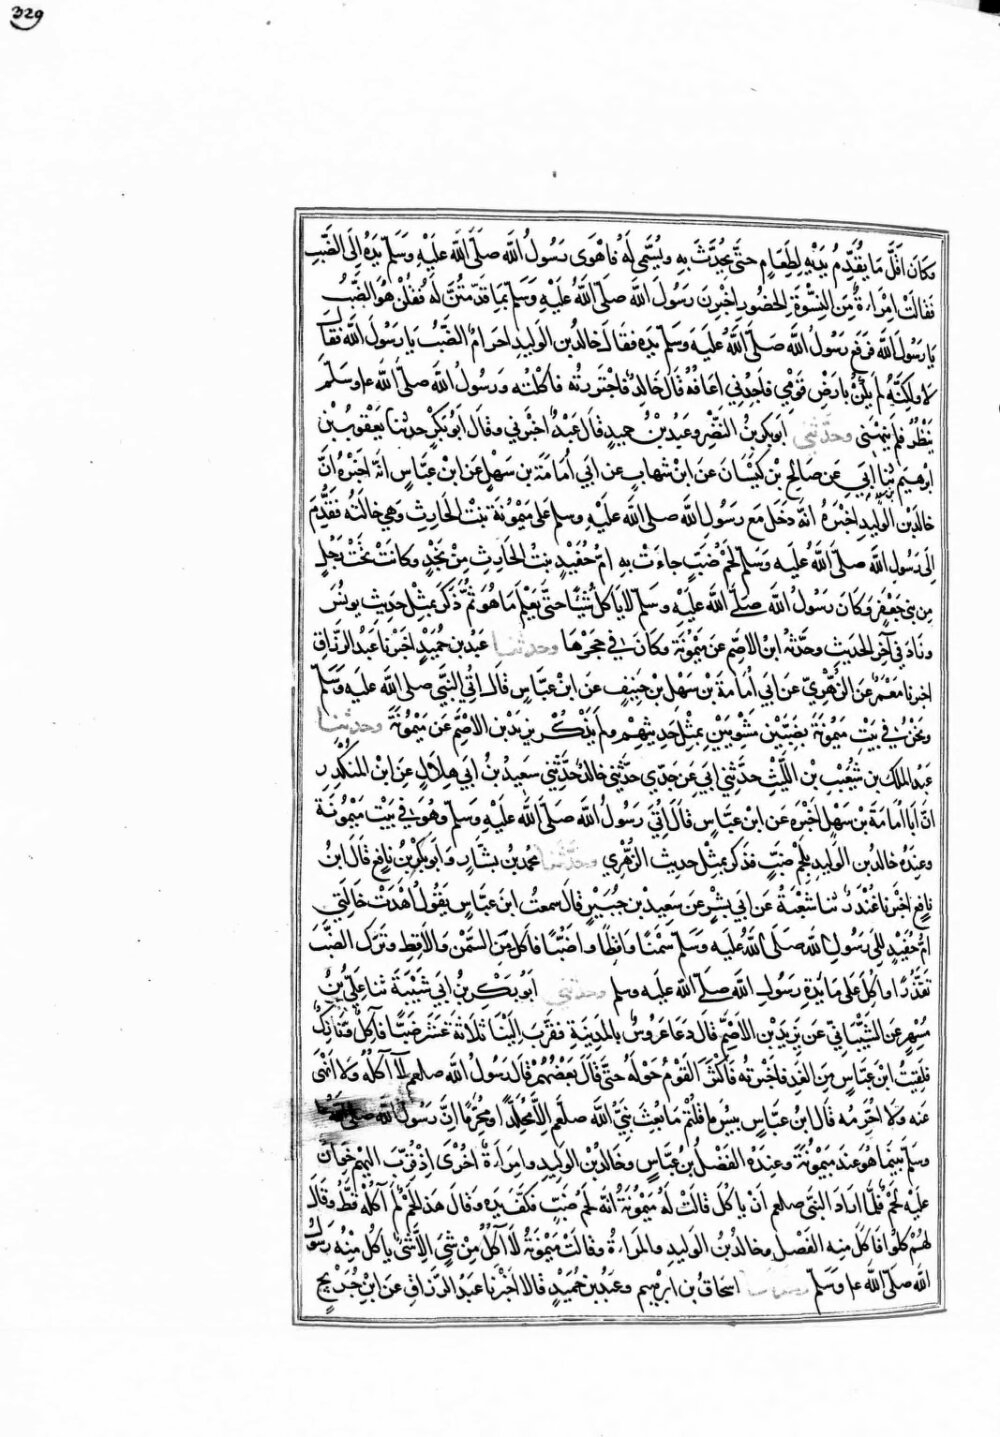 329
وكان اقلّ ما يقدّم يديه لطعام حتى يحدّث به ويسمّى له فاهوى رسول الله صلى الله عليه وسلم يده الى الضب
فقالت امراءة من النسوة الحضور اخبرن رسول الله صلى الله عليه وسلم بما قدمتن له قلن هو الضب
يا رسول الله فرفع رسول الله صلى الله عليه وسلم يده فقال خالد بن الوليد احرام الضب يا رسول الله فقال
لا ولكنه لم يكن بارض قومي فاجدني اعافه قال خالد فاجتررته فاكلته ورسول الله صلى الله عليه وسلم
ينظر فلم ينهني وحدثني ابو بكر بن النضر وعبد بن حميد قال عبد اخبرني وقال ابو بكر حدثنا يعقوب بن
ابرهيم ثنا ابي عن صالح بن كيسان عن ابن شهاب عن ابي امامة بن سهل عن ابن عباس انه اخبره ان
خالد بن الوليد اخبره انه دخل مع رسول الله صلى الله عليه وسلم على ميمونة بنت الحارث وهي خالته فقدم
الى رسول الله صلى الله عليه وسلم لحم ضب جاءت به ام حفيد بنت الحارث من نجد وكانت تحت رجل
من بني جعفر وكان رسول الله صلى الله عليه وسلم لا ياكل شيئا حتى يعلم ما هو ثم ذكر بمثل حديث يونس
وزاد في آخر الحديث وحدثه ابن الاصم عن ميمونة وكان في حجرها وحدثنا عبد بن حميد اخبرنا عبد الرزاق
اخبرنا معمر عن الزهري عن ابي امامة بن سهل بن حنيف عن ابن عباس قال اتي النبي صلى الله عليه وسلم
ونحن في بيت ميمونة بضبين مشويين بمثل حديثهم ولم يذكر يزيد بن الاصم عن ميمونة وحدثنا
عبد الملك بن شعيب بن الليث حدثني ابي عن جدي حدثني خالد حدثني سعيد بن ابي هلال عن ابن المنكدر
ان ابا امامة بن سهل اخبره عن ابن عباس قال اتي رسول الله صلى الله عليه وسلم وهو في بيت ميمونة
وعنده خالد بن الوليد بلحم ضب فذكر بمثل حديث الزهري وحدثنا محمد بن بشار وابو بكر بن نافع قال ابن
نافع اخبرنا غندر ثنا شعبة عن ابي بشر عن سعيد بن جبير قال سمعت ابن عباس يقول اهدت خالتي
ام حفيد الى رسول الله صلى الله عليه وسلم سمنا واقطا واضبّا فاكل من السمن والاقط وترك الضب
تقذرا واكل على مايدة رسول الله صلى الله عليه وسلم وحدثني ابو بكر بن ابي شيبة ثنا علي بن
مسهر عن الشيباني عن يزيد بن الاصم قال دعا عروس بالمدينة فقرب الينا ثلاثة عشر ضبا فآكل وتارك
فلقيت ابن عباس من الغد فاخبرته فاكثر القوم حوله حتى قال بعضهم قال رسول الله صلعم لا آكله ولا انهى
عنه ولا احرمه قال ابن عباس بيس ما قلتم ما بعث نبي الله صلعم الا محللا ومحرما ان رسول الله صلى الله
وسلم بينما هو عند ميمونة وعنده الفضل بن عباس وخالد بن الوليد وامراءة اخرى اذ قرب اليهم خوان
عليه لحم فلما اراد النبي صلعم ان ياكل قالت له ميمونة انه لحم ضب فكف يده وقال هذا لحم لم آكله قط وقال
لهم كلوا فاكل منه الفضل وخالد بن الوليد والمراءة وقالت ميمونة لا آكل من شي الا شي ياكل منه رسول
الله صلى الله عليه وسلم اسحاق بن ابرهيم وعبد بن حميد قالا اخبرنا عبد الرزاق عن ابن جريج